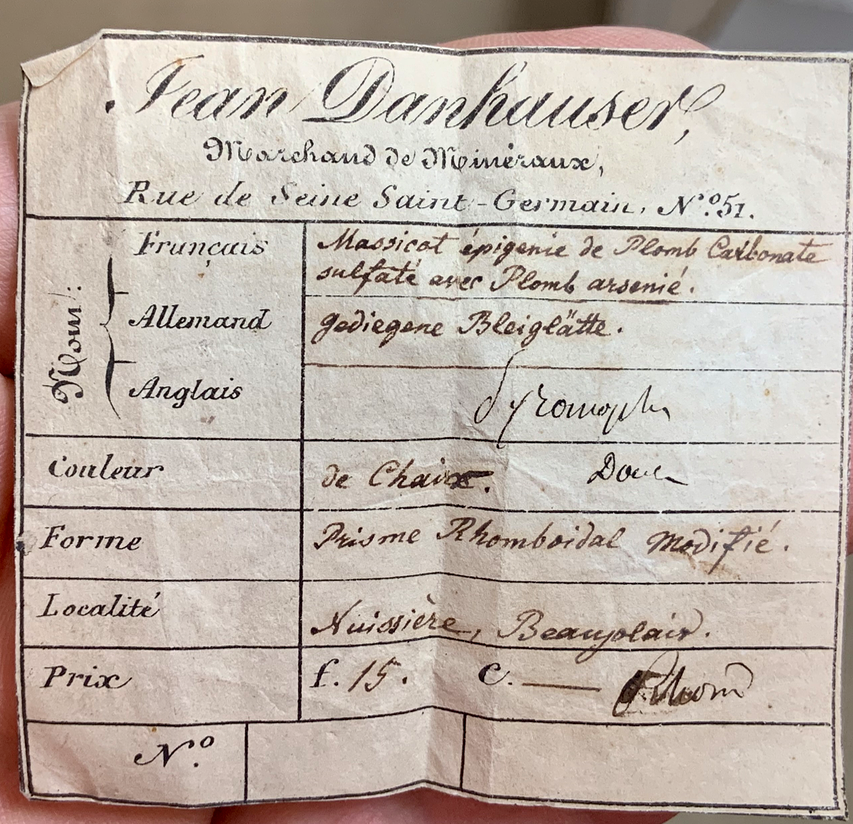 Jean Danhauser,
Marchand de Minéraux,
Rue de Seine Saint-Germain, N.º 51.
Nom:
Français
Massicot épigenie de Plomb Carbonate
sulfaté avec Plomb arsenié.
Allemand
Gediegene Bleiglätte.
Anglais
Couleur
de Chaix.
Forme
Prisme Rhomboidal Modifié.
Localité
Nuissière, Beaujolais.
Prix
f. 15. C. —
N.º